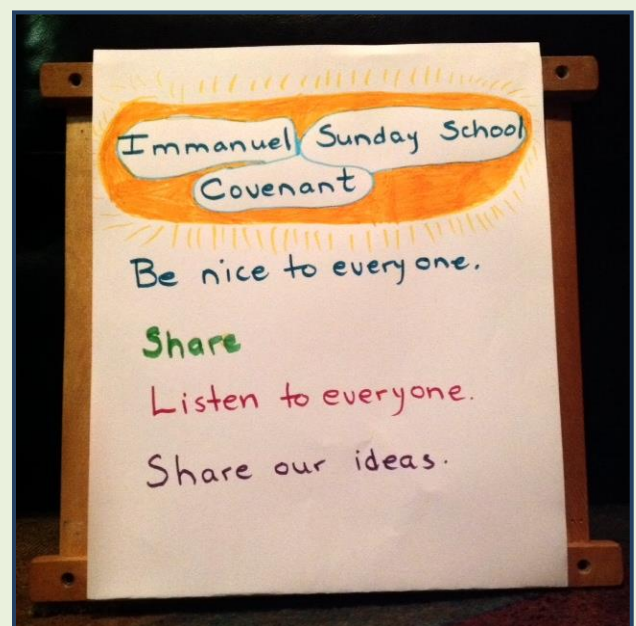 Immanuel Sunday School
Covenant
Be nice to everyone.
Share
Listen to everyone.
Share our ideas.